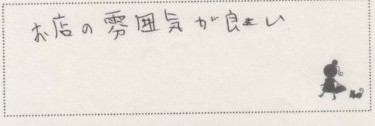 お店の雰囲気が良い